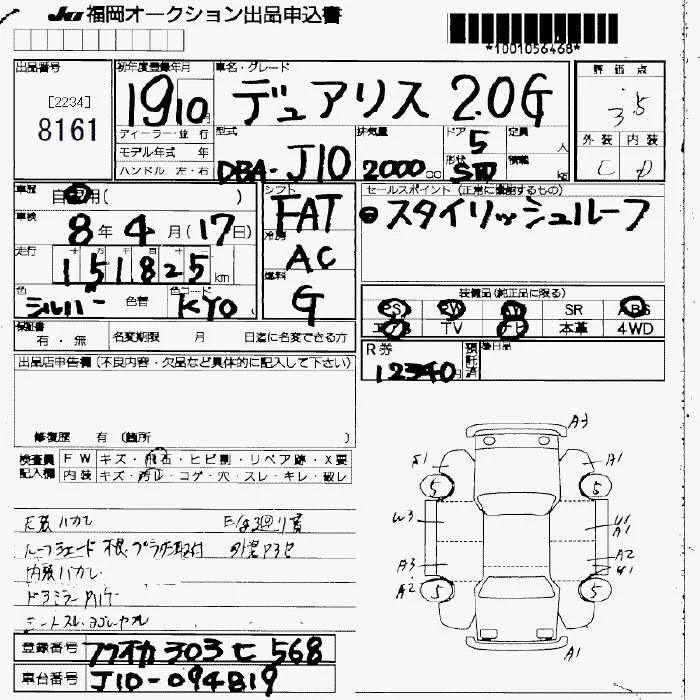 JU 福岡オークション出品申込書
*1001056468*
出品番号
[2234]
8161
初年度登録年月
19 10月
ディーラー・並行
モデル年式 年
ハンドル 左・右
車名・グレード
デュアリス 2.0G
型式
DBA-J10
排気量
2000 cc
ドア
5
形状
定員
人
積載
kg
評価点
3.5
外装 内装
C D
車歴
自家用( )
車検
8年 4月(17日)
走行
151825 km
色
シルバー 色替
色コード
KY0
シフト
FAT
冷房
AC
燃料
G
セールスポイント(正常に機能するもの)
スタイリッシュルーフ
装備品(純正品に限る)
PS PW AW SR ABS
エアB TV ナビ 本革 4WD
保証書
有・無
名変期限 月 日迄に名変できる方
R券
12340円
預託済
後日品
出品店申告欄(不良内容・欠品など具体的に記入して下さい)
修復歴 有(箇所 )
検査員記入欄
FW キズ・飛石・ヒビ割・リペア跡・X要
内装 キズ・汚レ・コゲ・穴・スレ・キレ・破レ
天張ハガレ
内張ハガレ
登録番号
303 セ 568
車台番号
J10-094819
A3
A1
5
5
W3
U1
A1
A2
A3
A2
5
5
A1